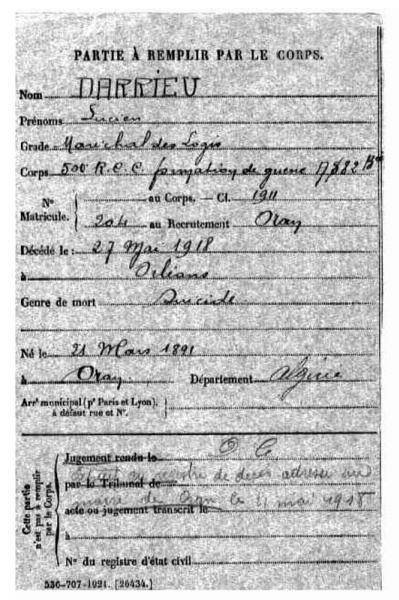 PARTIE À REMPLIR PAR LE CORPS.
Nom DARRIEU
Prénoms Lucien
Grade Maréchal des Logis
Corps 500e R.C.C. formation de guerre
Nº Matricule. au Corps. — Cl. 1911
204 au Recrutement Oran
Décédé le : 27 Mai 1918
à Orléans
Genre de mort Suicide
Né le 21 Mars 1891
à Oran Département Algérie
Arrt municipal (pr Paris et Lyon), à défaut rue et Nº.
Cette partie n'est pas à remplir par le Corps.
Jugement rendu le
par le Tribunal de
acte ou jugement transcrit le
de décès adressé au
maire de le mai 1918
à
Nº du registre d'état civil
536-707-1921. [26434.]